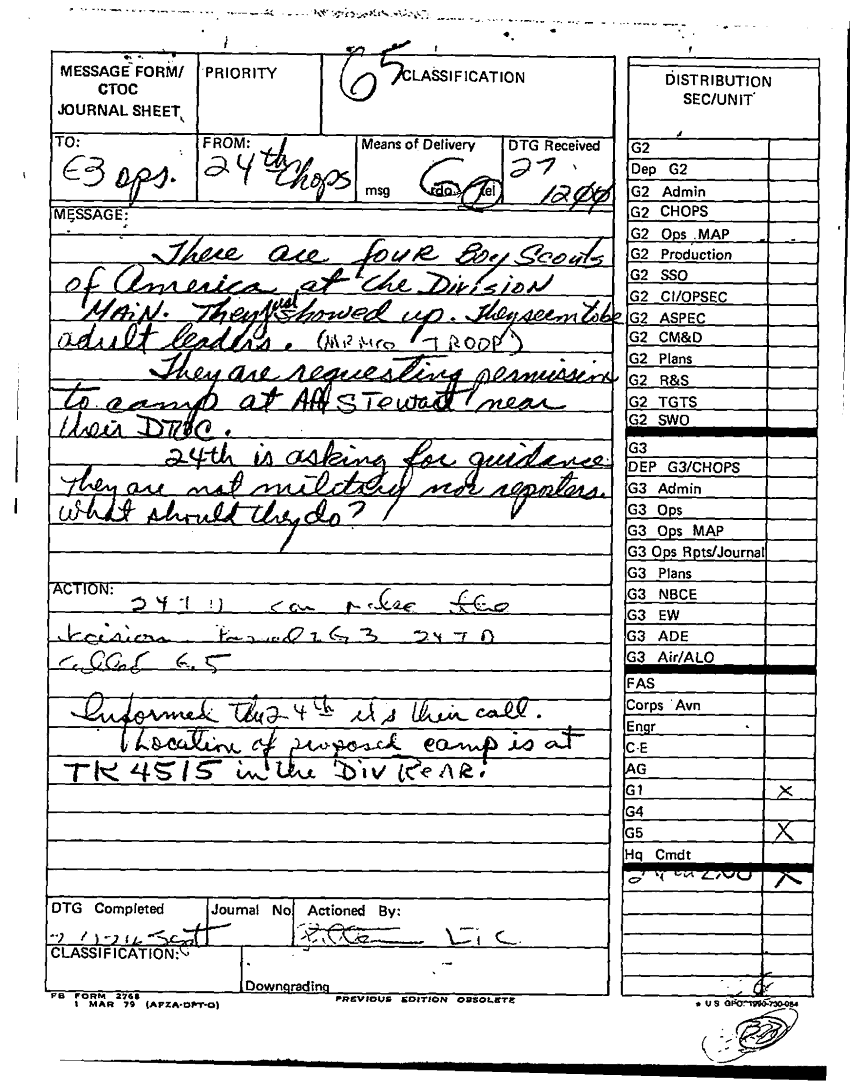 MESSAGE FORM/
CTOC
JOURNAL SHEET
PRIORITY
65
CLASSIFICATION
TO:
G3 ops.
FROM:
24th Chops
Means of Delivery
msg rdo tel
DTG Received
27
1200
MESSAGE:
There are four Boy Scouts
of America at the Division
MAIN. They just showed up. They seem to be
adult leaders. ( TROOP)
They are requesting permission
to camp at AA Stewart near
their DTOC.
24th is asking for guidance
They are not military nor reporters.
What should they do?
ACTION:
24 can make the
decision G3 24 ID
called G.5
Informed the 24th it's their call.
Location of proposed camp is at
TK 4515 in the DIV REAR.
DTG Completed
Journal No
Actioned By:
LTC
CLASSIFICATION:
Downgrading
FB FORM 2768
1 MAR 79 (AFZA-DPT-O)
PREVIOUS EDITION OBSOLETE
DISTRIBUTION
SEC/UNIT
G2
Dep G2
G2 Admin
G2 CHOPS
G2 Ops MAP
G2 Production
G2 SSO
G2 CI/OPSEC
G2 ASPEC
G2 CM&D
G2 Plans
G2 R&S
G2 TGTS
G2 SWO
G3
DEP G3/CHOPS
G3 Admin
G3 Ops
G3 Ops MAP
G3 Ops Rpts/Journal
G3 Plans
G3 NBCE
G3 EW
G3 ADE
G3 Air/ALO
FAS
Corps Avn
Engr
C-E
AG
G1 X
G4
G5 X
Hq Cmdt
X
* U S GPO: 1990-730-084